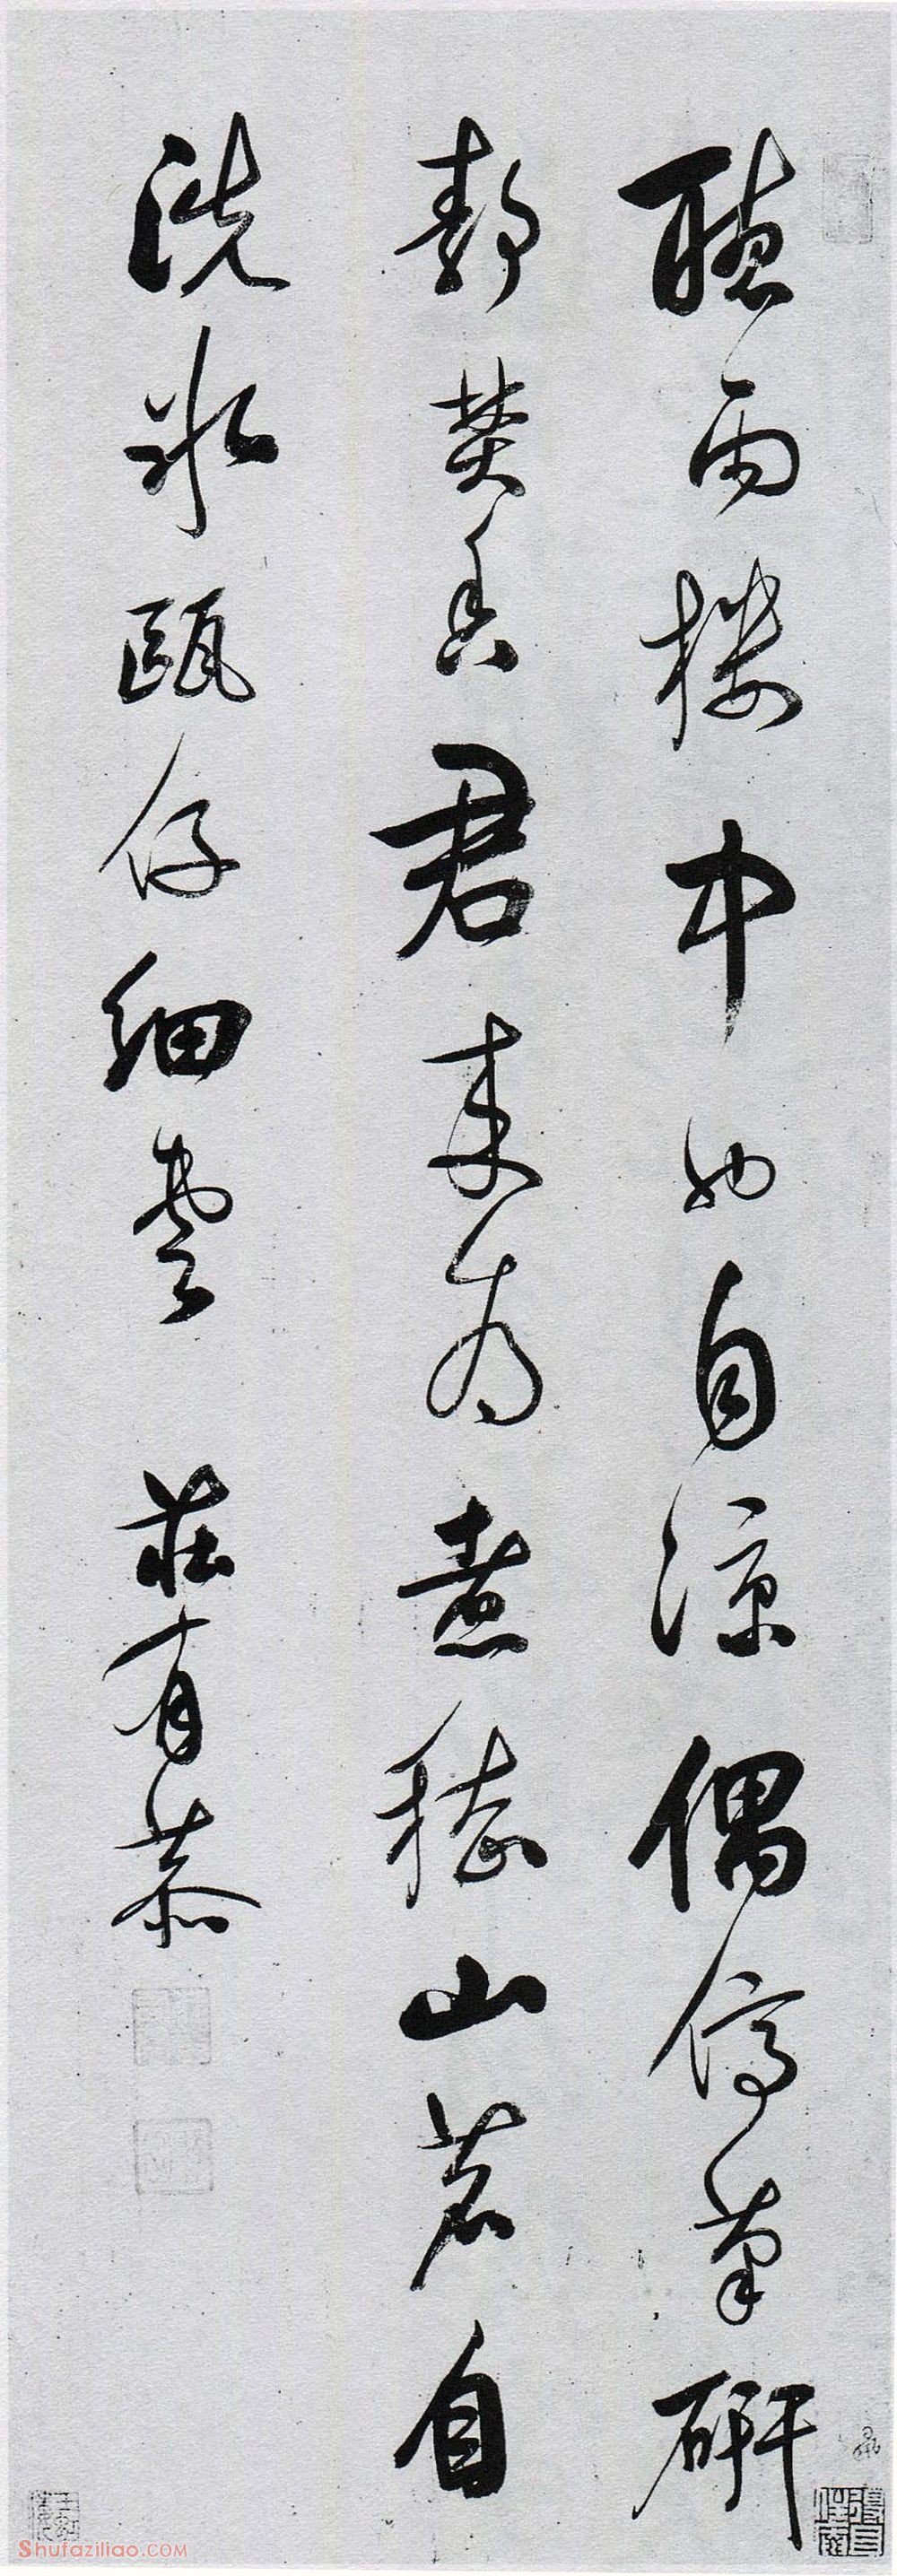 聽雨樓中也自涼偶停筆研
靜焚香君来為煮稽山茗自
洗冰甌仔細嘗 莊有恭
Shufaziliao.COM